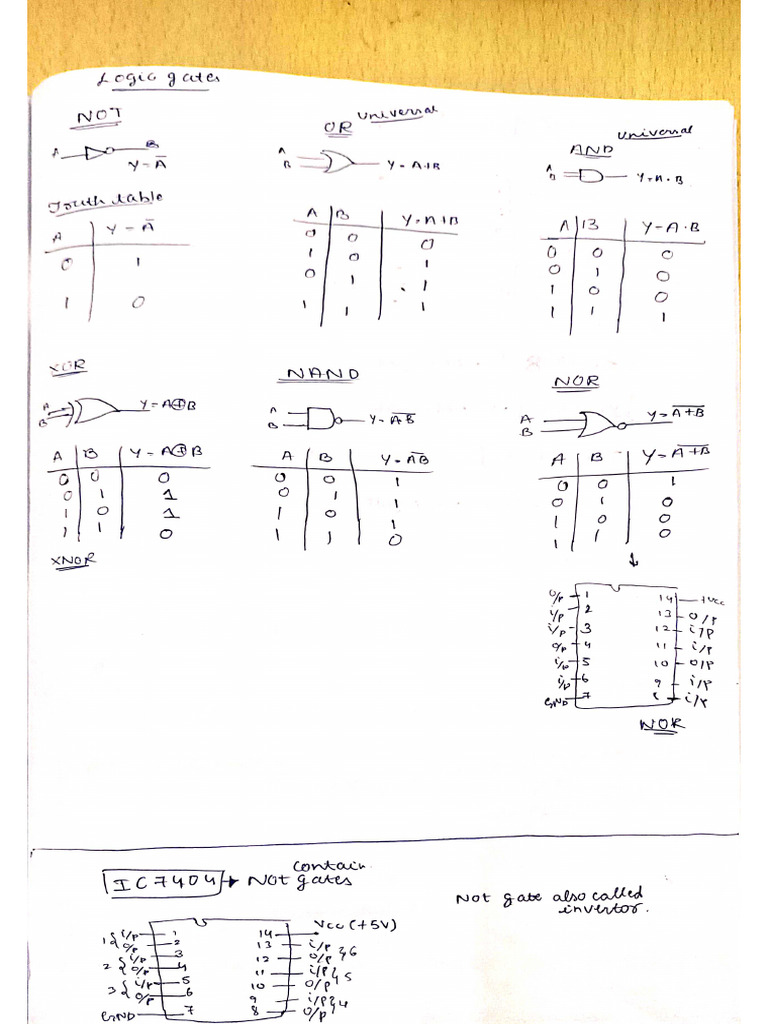 Logic gates
NOT
A
B
Y = A̅
Truth table
A | Y = A̅
0 | 1
1 | 0
OR
Universal
A
B
Y = A+B
A | B | Y = A+B
0 | 0 | 0
1 | 0 | 1
0 | 1 | 1
1 | 1 | 1
Universal
AND
A
B
Y = A . B
A | B | Y = A . B
0 | 0 | 0
0 | 1 | 0
1 | 0 | 0
1 | 1 | 1
XOR
A
B
Y = A⊕B
A | B | Y = A⊕B
0 | 0 | 0
0 | 1 | 1
1 | 0 | 1
1 | 1 | 0
XNOR
NAND
A
B
Y = A̅B̅
A | B | Y = A̅B̅
0 | 0 | 1
0 | 1 | 1
1 | 0 | 1
1 | 1 | 0
NOR
A
B
Y = A̅+̅B̅
A | B | Y = A̅+̅B̅
0 | 0 | 1
0 | 1 | 0
1 | 0 | 0
1 | 1 | 0
O/P 1 14 +Vcc
I/P 2 13 O/P
i/P 3 12 i/P
O/P 4 11 i/P
i/P 5 10 O/P
i/P 6 9 i/P
GND 7 8 i/P
NOR
IC7404 → contain
NOT gates
Not gate also called
invertor.
1 { i/P 1 14 Vcc (+5V)
O/P 2 13 i/P } 6
2 { i/P 3 12 O/P
O/P 4 11 i/P } 5
3 { i/P 5 10 O/P
O/P 6 9 i/P } 4
GND 7 8 O/P